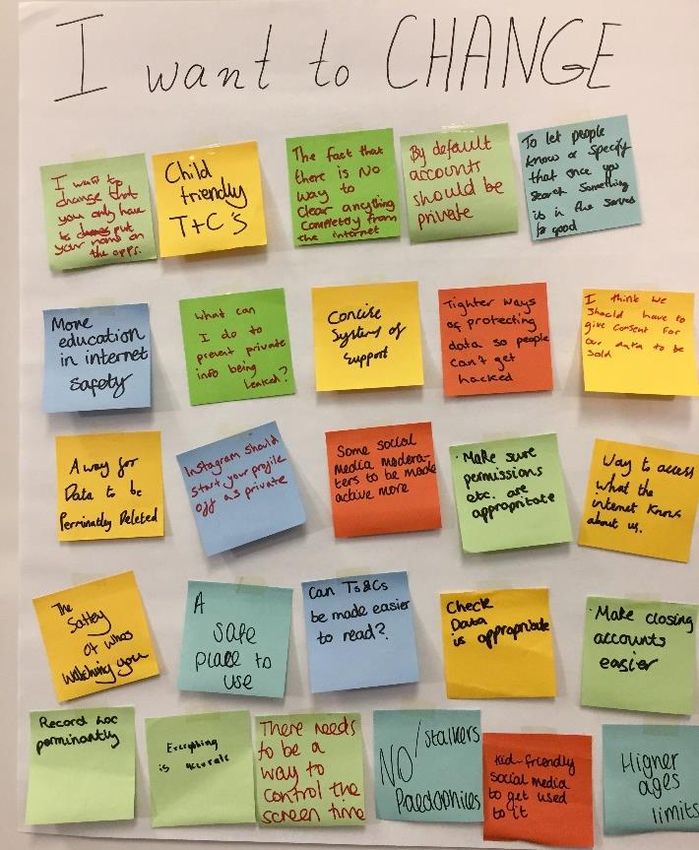 I want to CHANGE
I want to
change that
you only have
to put
your name on
the apps.
Child
friendly
T+C's
The fact that
there is No
way to
clear anything
completely from
the internet
By default
accounts
should be
private
To let people
know or specify
that once you
search something
is in the servers
for good
More
education
in internet
safety
What can
I do to
prevent private
info being
leaked?
Concise
System of
support
Tighter ways
of protecting
data so people
can't get
hacked
I think we
should have to
give consent for
our data to be
sold
A way for
Data to be
Perminatly Deleted
Instagram should
start your profile
off as private
Some social
media modera-
tors to be made
active more
Make sure
permissions
etc. are
appropriate
Way to access
what the
internet knows
about us.
The
Saftey
of whos
watching you
A
safe
place to
use
Can Ts&Cs
be made easier
to read?
Check
Data
is appropriate
Make closing
accounts
easier
Record
perminantly
Everything
is accurate
There needs
to be a
way to
control the
screen time
NO / stalkers
Paedophiles
Kid-friendly
social media
to get used
to it
Higher
ages
limits